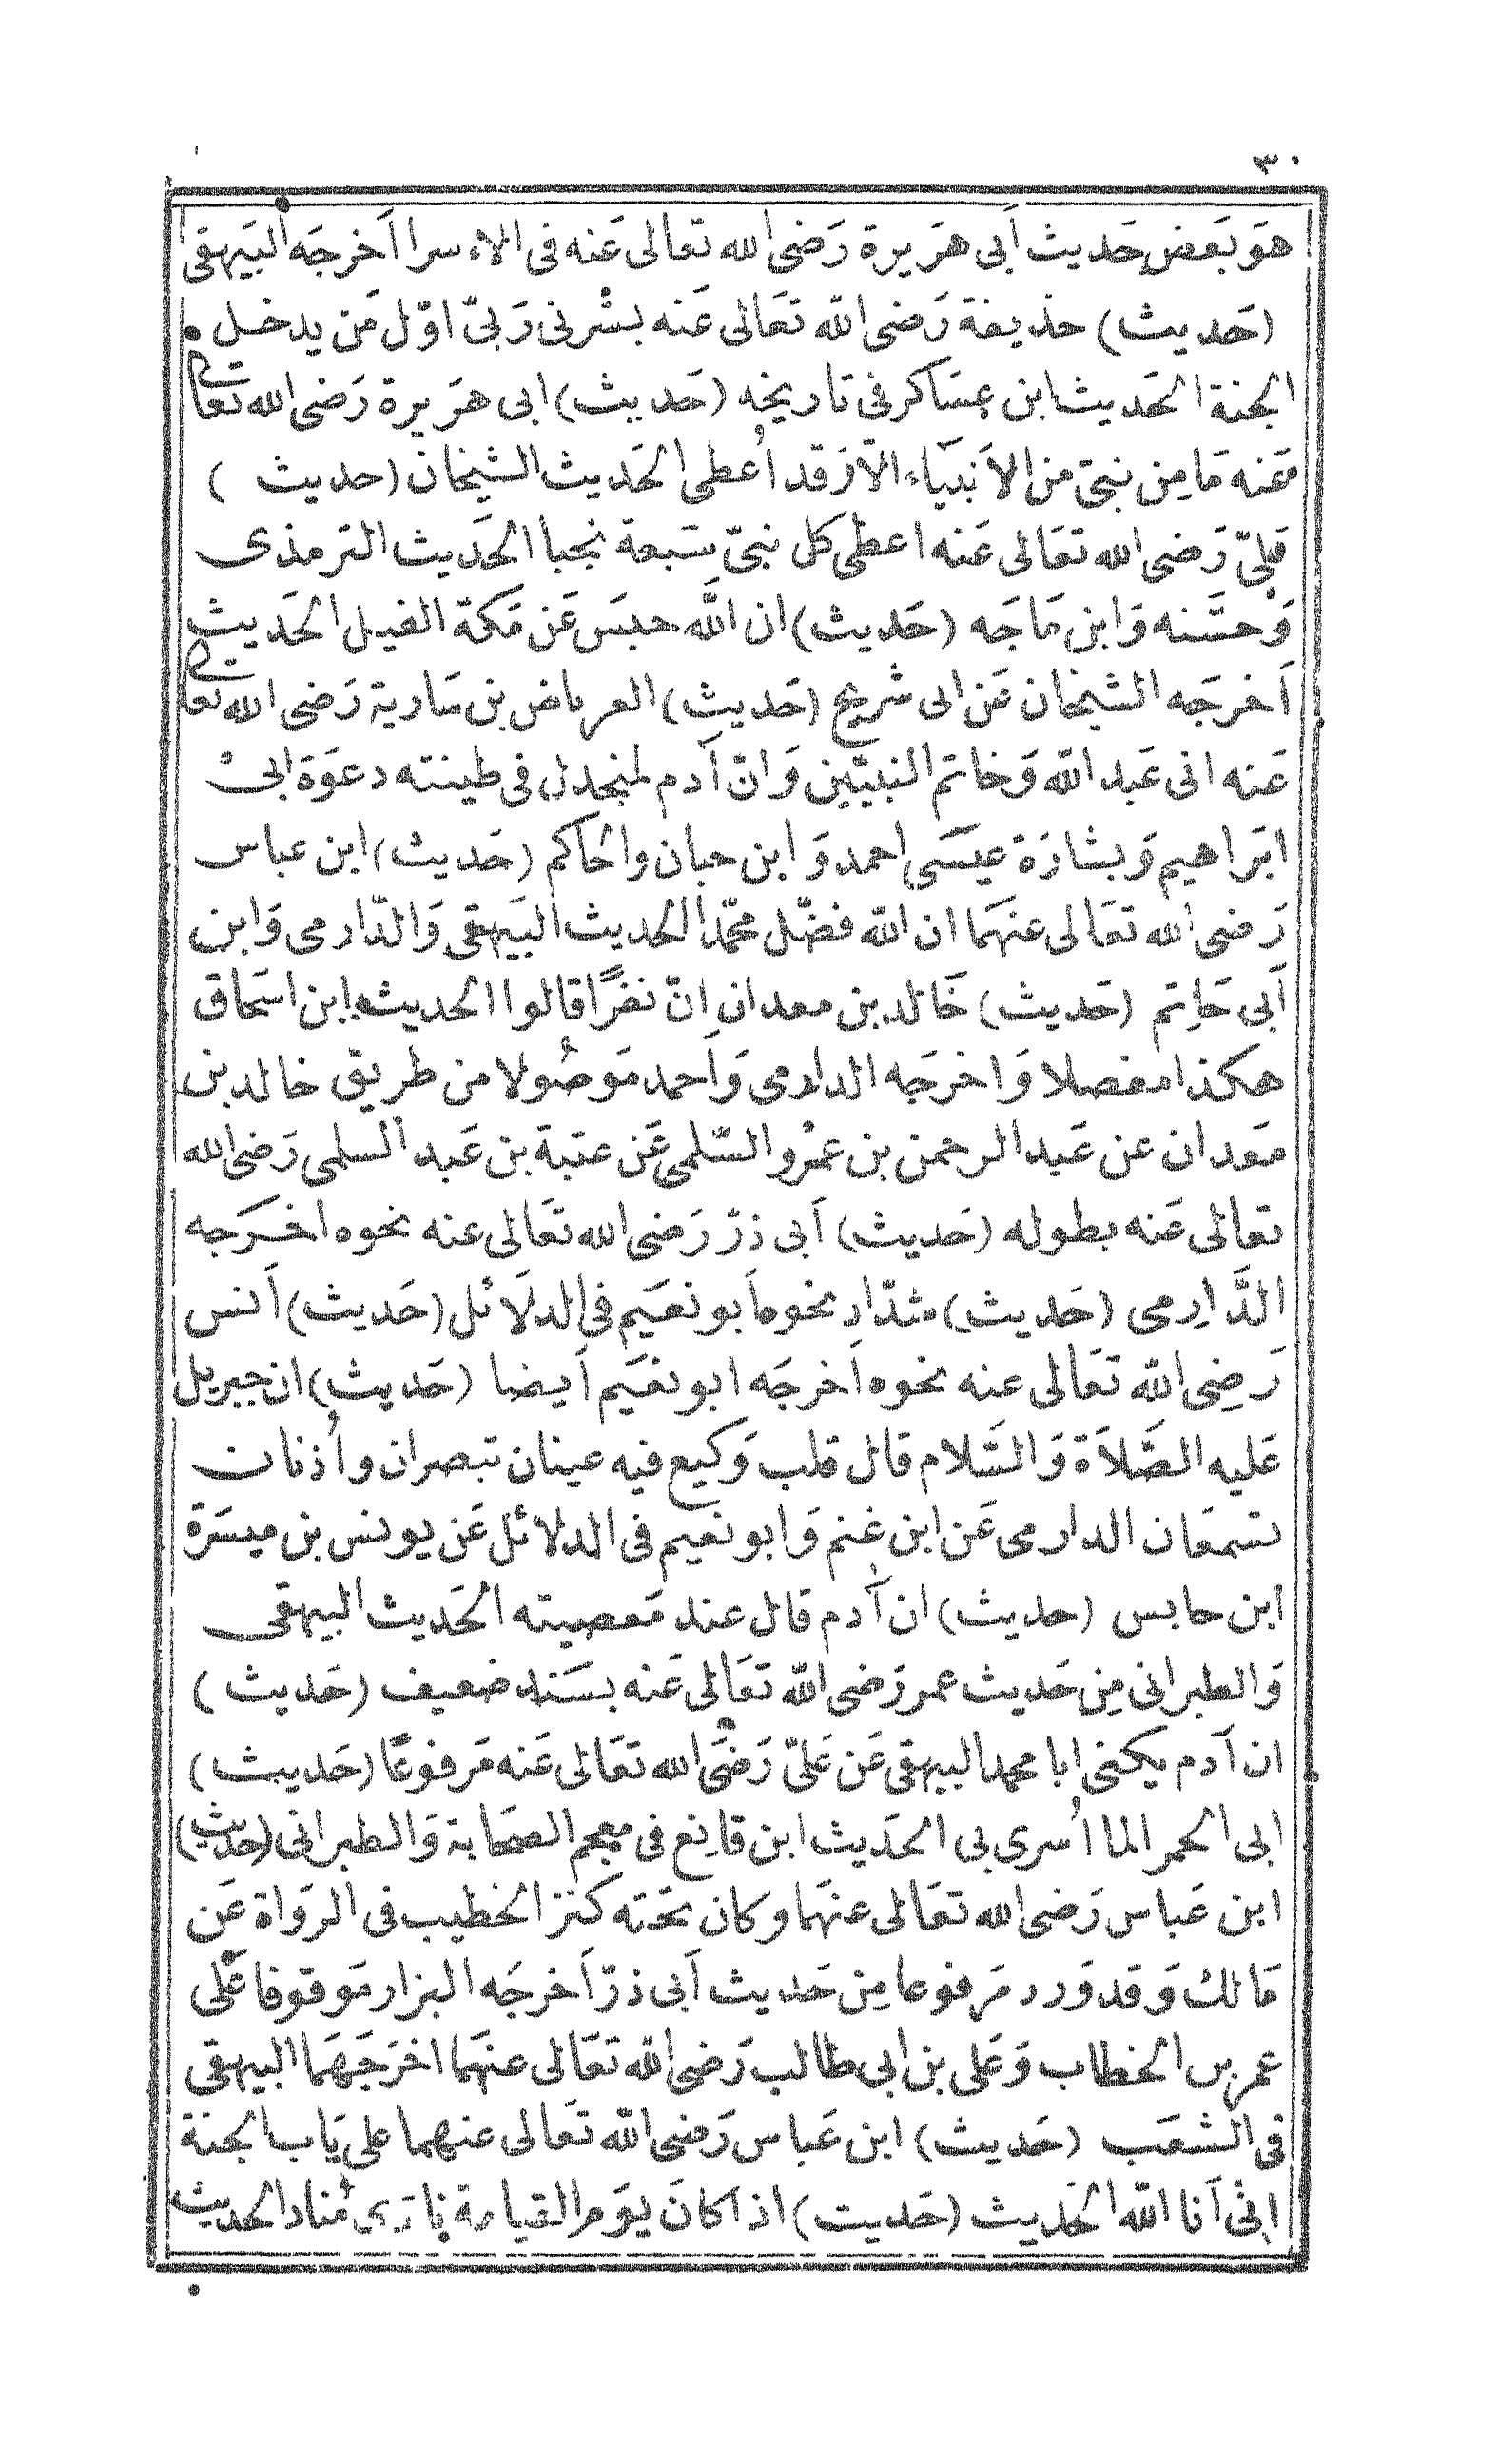 ٣٠
هوَ بَعض حَديث أَبى هرَيرة رَضى الله تعالى عَنه فى الاءسرا أَخرجَه البَيهقى
(حَديث) حذيفة رَضى الله تعَالى عَنه بشرنى رَبىّ اوّل مَن يدخل
الجنة الحَديث ابن عسَاكر فى تاريخه (حَديث) ابى هرَيرة رَضى الله تعالى
عَنه مَا مِن نبىّ من الاَنبيَاء الاّ وَقد أُعطى الحَديث الشيخان (حديث )
عَلىّ رَضى الله تعَالى عَنه اعطى كل نبىّ سَبعة نجبا الحَديث الترمذى
وَحسَّنه وَابن مَاجَه (حَديث) ان اللَّه حبسَ عَن مَكة الفيل الحَديث
أَخرجَه الشيخان عَن ابى شريح (حَديث) العرباض بن سَارية رَضى الله تعالى
عَنه انى عَبد الله وَخاتم النبيّين وَانّ آدم لمنجدل فى طينته دعوَة ابى
ابرَاهيم وَبشارَة عيسَى احمد وَابن حبان والحاكم (حَديث) ابن عباس
رَضى الله تعَالى عنهمَا ان الله فضّل محمّدا الحديث البَيهقى وَالدّارمى وَابن
أَبى حَاتِم (حَديث) خَالد بن معدان انّ نفرًا قالوا الحديث ابن اسحَاق
هكذا مفصلا وَاخرجَه الدارمى وَأحمد مَوصُولا من طريق خالد بن
مَعدان عن عَبد الرحمن بن عمْرو السّلمى عَن عتبة بن عَبد السلمى رَضى الله
تعَالى عَنه بطوله (حَديث) أَبى ذرّ رَضى الله تعَالى عنه نحوه اخرَجه
الدَّارِمى (حَديث) شدّاد نحوه أَبو نعَيم فى الدلاَئل (حَديث) أَنس
رَضِى الله تعَالى عنه نحوه أَخرجَه ابو نعَيم أَيضا (حَديث) ان جبريل
عَليه الصَّلاَة وَالسَّلام قال قلب وَكيع فيه عينان تبصران وأُذنان
تسمعَان الدارمى عَن ابن غنم وَابو نعيم فى الدلائل عَن يونس بن ميسَرَة
ابن حابس (حديث) ان آدم قال عند مَعصيته الحَديث البيهقى
وَالطبرانى مِن حَديث عمر رَضى الله تعَالى عَنه بسَند ضعيف (حَديث )
ان آدم يكنى ابا محمد البيهقى عَن عَلىّ رَضَى الله تعَالى عَنه مَرفوعًا (حَديث)
ابى الحمرا لما أُسرى بى الحَديث ابن قانع فى معجم الصحَابة وَالطبرانى (حديث)
ابن عَباس رَضى الله تعَالى عنهمَا وكان تحَته كنز الخطيب فى الروَاة عَن
مَالك وَقد وَرد مَرفوعا مِن حَديث أَبى ذرّ أَخرجَه البزار مَوقوفا عَلى
عمر بن الخطاب وَعَلى بن ابى طالب رَضى الله تعَالى عنهمَا اخرَجَهمَا البيهقى
فى الشعَب (حَديث) ابن عَباس رَضى الله تعَالى عنهما على بَاب الجنة
انّى أَنا الله الحَديث (حَديث) اذا كانَ يوَم القيامة نادَى مُناد الحديث